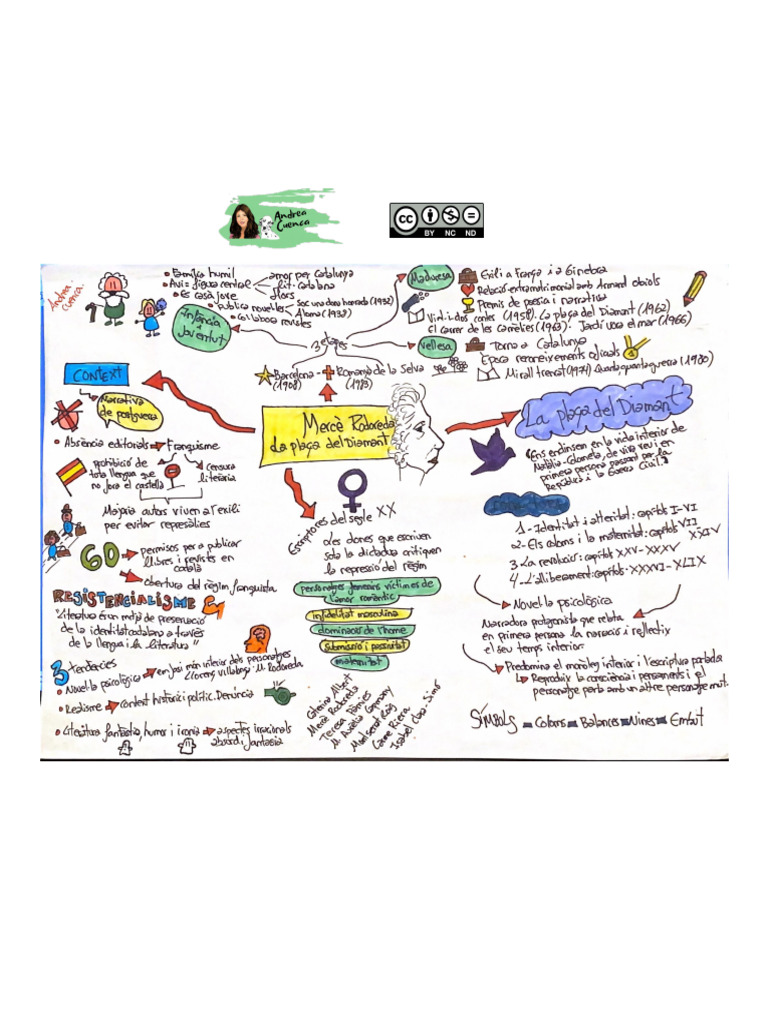 Andrea
Cuenca
CC BY NC ND
Andrea
Cuenca
• Família humil
• Avi = figura central
amor per Catalunya
lit. catalana
flors
• Es casà jove
• Publica novel·les
Soc una dona honrada (1932)
Aloma (1938)
• Col·labora revistes
Infància i
Joventut
3 etapes
Maduresa
Exili a França i a Ginebra
Relació extramatrimonial amb Armand Obiols
Premis de poesia i narrativa
Vint-i-dos contes (1958). La plaça del Diamant (1962)
El carrer de les Camèlies (1963). Jardí vora el mar (1966)
Vellesa
Torna a Catalunya
Època reconeixements oficials
Mirall trencat (1974) Quanta, quanta guerra (1980)
Barcelona
(1908)
Romanyà de la Selva
(1983)
CONTEXT
Narrativa
de postguerra
• Absència editorials
Franquisme
prohibició de
tota llengua que
no fora el castellà
censura
literària
Majoria autors viuen a l'exili
per evitar represàlies
60
permisos per a publicar
llibres i revistes en
català
obertura del règim franquista
RESISTENCIALISME
"Literatura és un mitjà de preservació
de la identitat catalana a través
de la llengua i la literatura"
3 tendències
• Novel·la psicològica
enfocà món interior dels personatges
Llorenç Villalonga i M. Rodoreda
• Realisme
context històric i polític. Denúncia
• Literatura fantàstica, humor i ironia
aspectes irracionals
absurd i fantasia
Mercè Rodoreda
La plaça del Diamant
Escriptores del segle XX
Les dones que escriuen
sota la dictadura critiquen
la repressió del règim
personatges femenins víctimes de
l'amor romàntic
infidelitat masculina
dominació de l'home
submissió i passivitat
maternitat
Caterina Albert
Mercè Rodoreda
Teresa Pàmies
M. Aurèlia Capmany
Montserrat Roig
Carme Riera
Isabel Clara-Simó
La plaça del Diamant
"Ens endinsen en la vida interior de
Natàlia-Colometa, de viva veu i en
primera persona passant per la
República i la Guerra Civil"
1- Identitat i alteritat: capítols I-VI
2- Els coloms i la maternitat: capítols VII
XXIV
3- La revolució: capítols XXV-XXXV
4- L'alliberament: capítols XXXVI-XLIX
Novel·la psicològica
Narradora protagonista que relata
en primera persona la narració i reflectix
el seu temps interior
Predomina el monòleg interior i l'escriptura parlada
Reproduïx la consciència i pensaments i el
personatge parla amb un altre personatge mut.
SÍMBOLS
Coloms
Balances
Nines
Embut